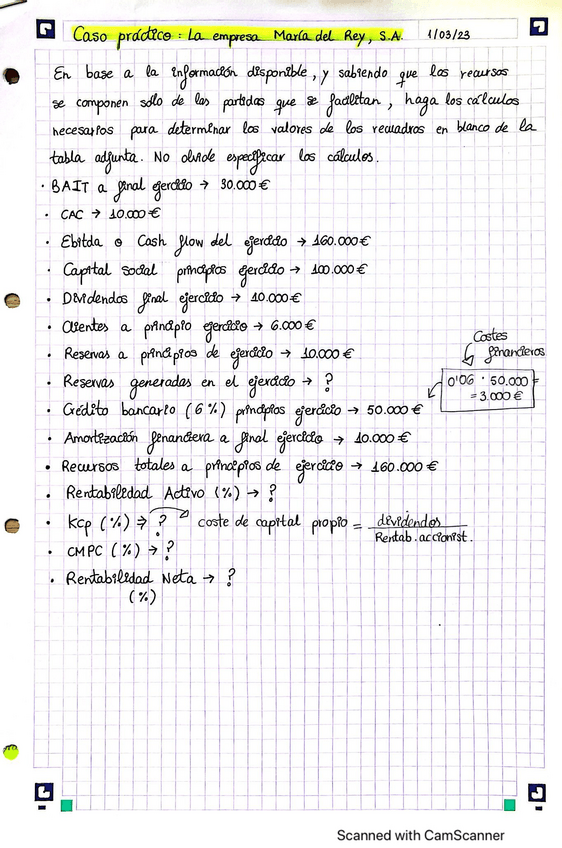 Caso práctico: La empresa María del Rey, S.A. 1/03/23
En base a la información disponible, y sabiendo que los recursos
se componen sólo de las partidas que se facilitan, haga los cálculos
necesarios para determinar los valores de los recuadros en blanco de la
tabla adjunta. No olvide especificar los cálculos.
· BAIT a final ejercicio → 30.000 €
· CAC → 10.000 €
· Ebitda o Cash flow del ejercicio → 160.000 €
· Capital social principios ejercicio → 100.000 €
· Dividendos final ejercicio → 10.000 €
· Clientes a principio ejercicio → 6.000 €
· Reservas a principios de ejercicio → 10.000 €
· Reservas generadas en el ejercicio → ?
· Crédito bancario (6%) principios ejercicio → 50.000 €
Costes
financieros
0'06 · 50.000 =
= 3.000 €
· Amortización financiera a final ejercicio → 10.000 €
· Recursos totales a principios de ejercicio → 160.000 €
· Rentabilidad Activo (%) → ?
· Kcp (%) → ? coste de capital propio = dividendos
Rentab. accionist.
· CMPC (%) → ?
· Rentabilidad Neta → ?
(%)
Scanned with CamScanner